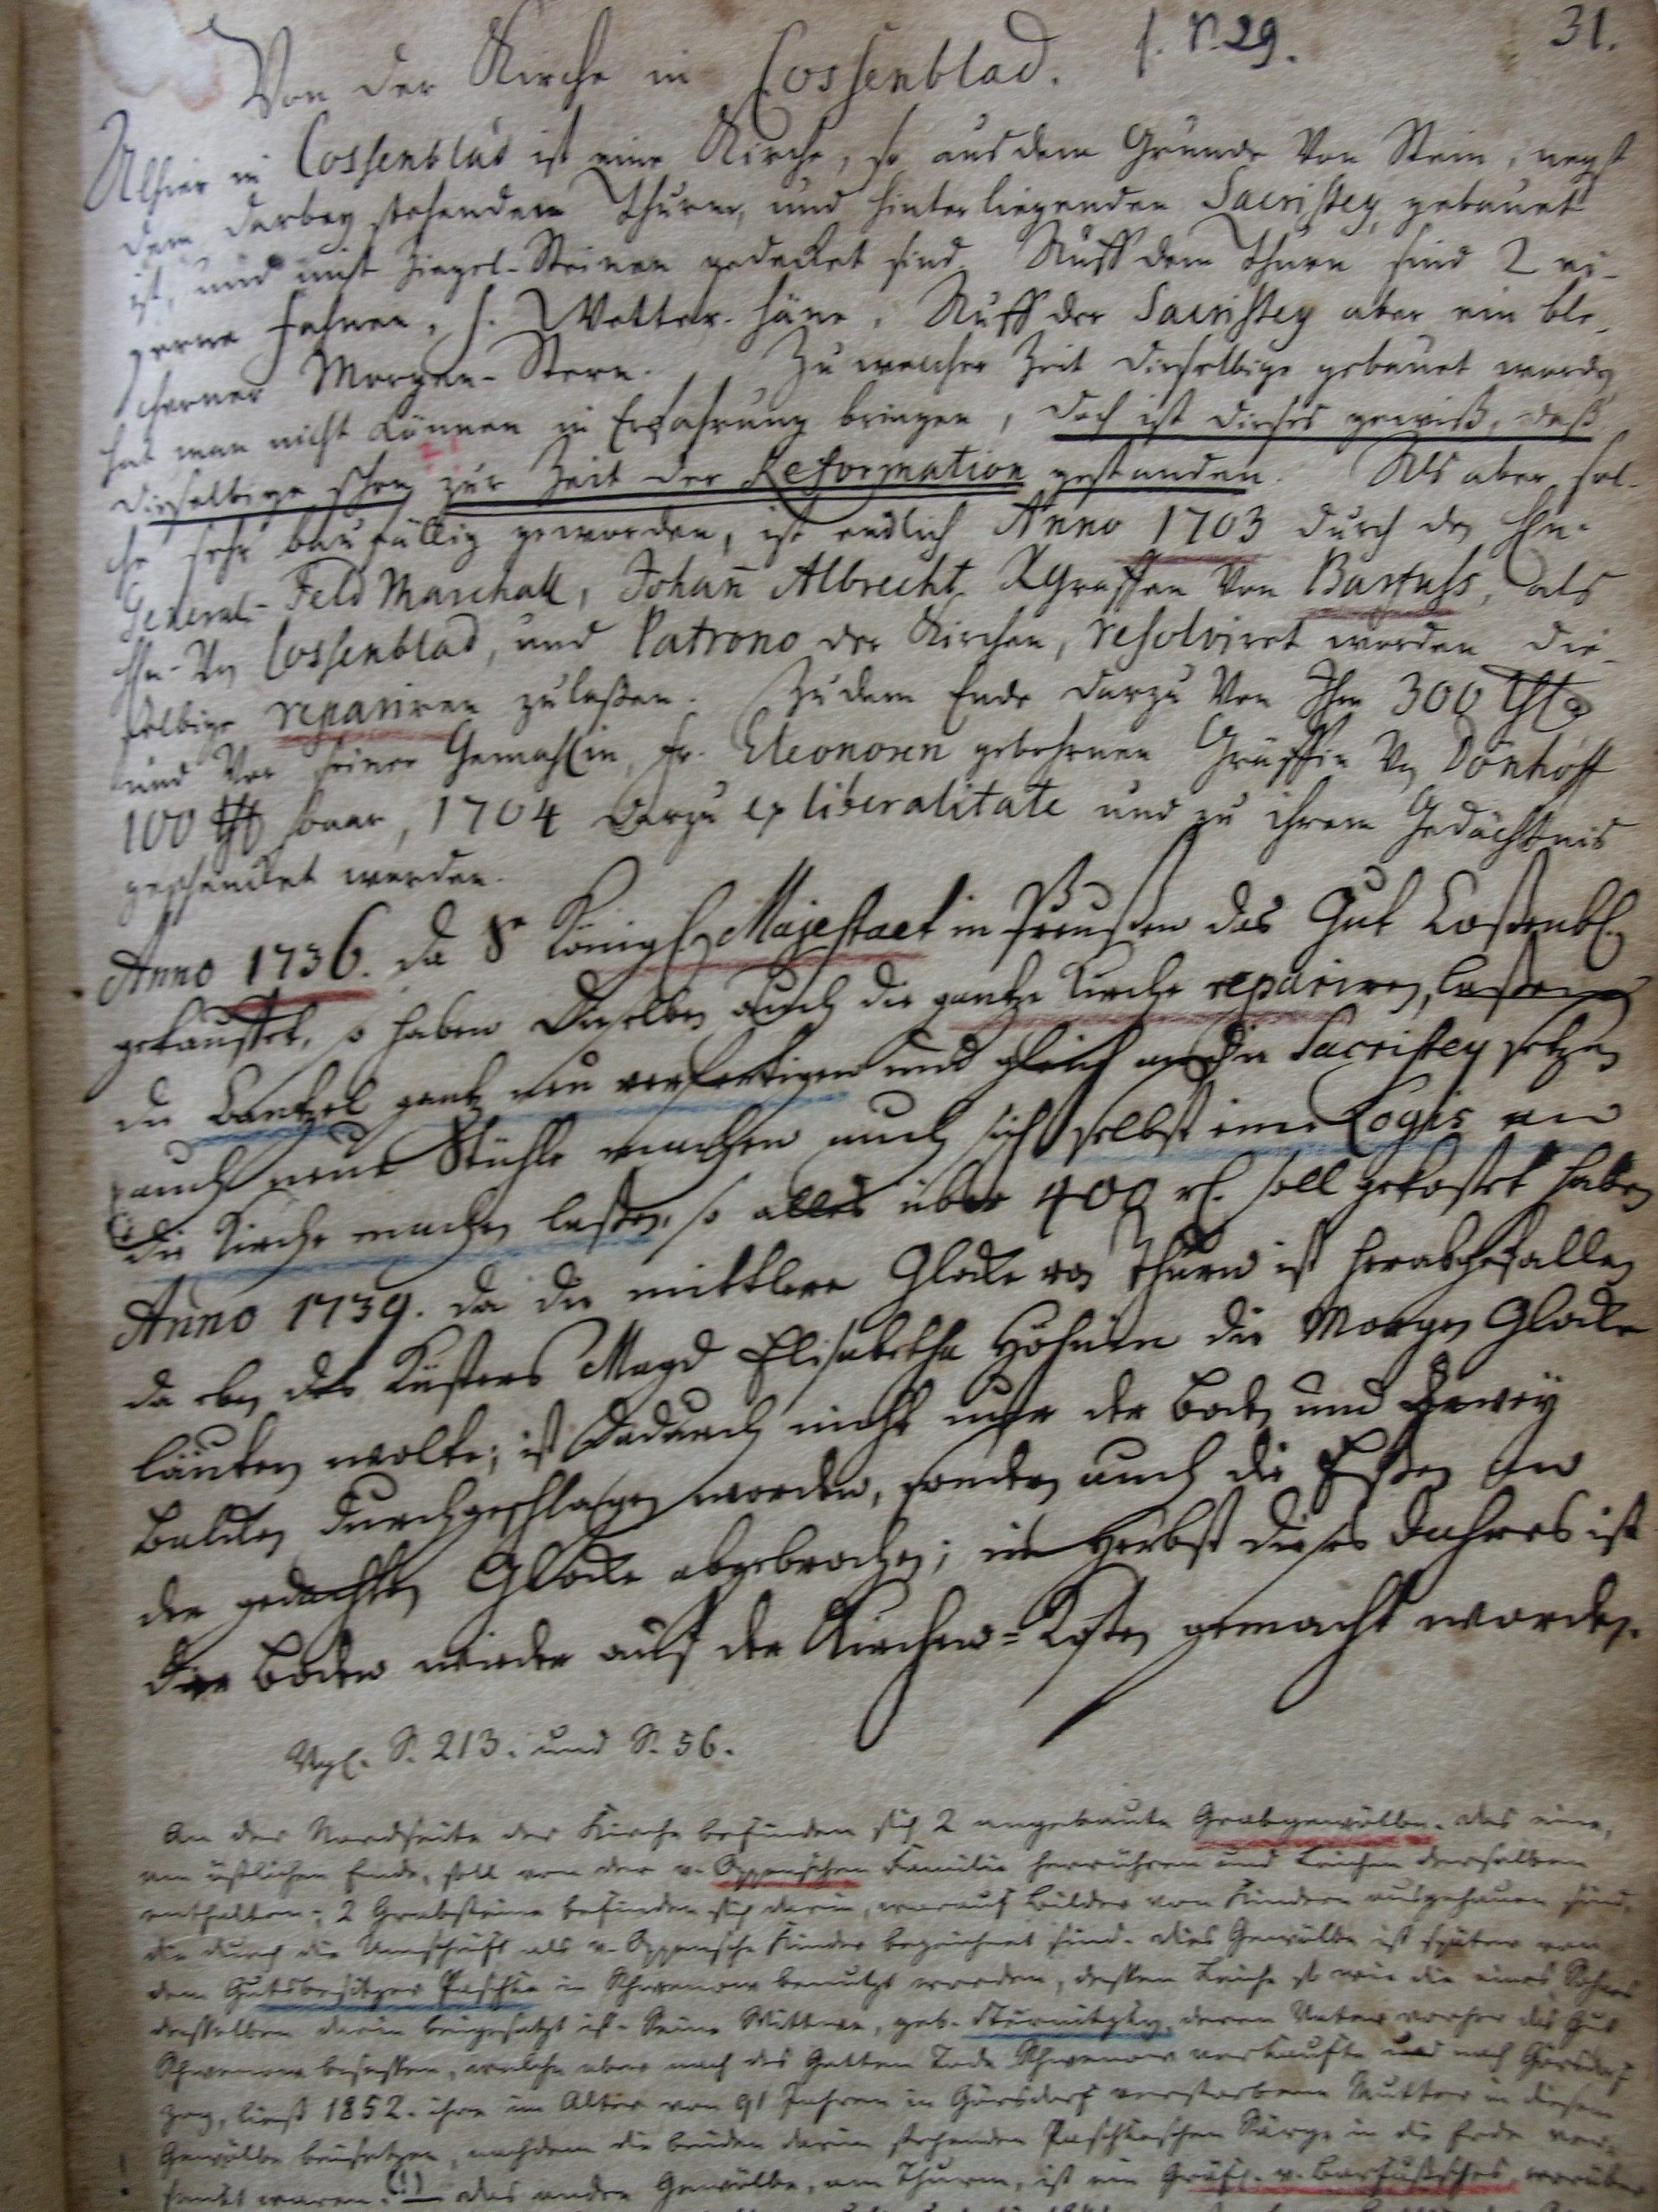 Von der Kirche in Cossenblad. f. P. 29. 31.
Alhier in Cossenblad ist eine Kirche, so aus dem Grunde Von Stein, nepst
dem darbey stehendem Thurm, und hinterliegenden Sacristey gebauet
ist, und mit Ziegel-Steinen gedecket sind. Auff dem Thurn sind 2 ei-
serne Fahnen, s. Wetter-Häne, Auff der Sacristey aber ein ble-
cherner Morgen-Stern. Zu welcher Zeit dieselbige gebauet worden
hat man nicht können in Erfahrung bringen, doch ist dieses gewiß, daß
dieselbige schon zur Zeit der Reformation gestanden. Als aber sol-
che sehr baufällig geworden, ist endlich Anno 1703 durch den Hn.
General-Feld Marschall, Johan̄ Albrecht Graffen Von Barfuss, als
Hn. Von Cossenblad, und Patrono der Kirchen, resolviret worden die-
selbige repariren zulaßen. Zu dem Ende darzu Von Ihm 300 Thl.
und Von seiner Gemahlin, Fr. Eleonoren gebohrnen Gräffin Von Dönhoff
100 Thl. baar, 1704 darzu ex liberalitate und zu ihrem Gedächtnis
geschencket worden.
Anno 1736. da Sr Königl. Majestaet in Preußen das Gut Coßenbl.
gekauffet, so haben Dieselben auch die gantze Kirche repariren, laßen
die Cantzel gantz neu verfertigen und gleich an die Sacristey setzen
auch neue Stühle machen auch sich selbst eine Logis an
die Kirche machen laßen, so alles über 400 rl. soll gekostet haben
Anno 1739. da die mittlere Glocke vom Thurm ist herabgefallen
da eben des Küsters Magd Elisabetha Höhnen die Morgen Glocke
läuten wolte; ist dadurch nicht nur der Boden und zwey
Balcken durchgeschlagen worden, sondern auch die an
der gedachten Glocke abgebrochen; im Herbst dieses Jahres ist
der Boden wieder auf der Kirchen-Kosten gemacht worden.
Vgl. S. 213. und S. 56.
An der Nordseite der Kirche befinden sich 2 angebaute Grabgewölbe. Das eine,
am östlichen Ende, soll von der v. Oppenschen Familie herrühren und Leichen derselben
enthalten; 2 Grabsteine befinden sich darin, worauf Bilder von Kindern ausgehauen sind,
die durch die Umschrift als v. Oppensche Kinder bezeichnet sind. Dies Gewölbe ist später von
dem Gutsbesitzer Paschke in Schwenow benutzt worden, dessen Leiche so wie die eines Sohnes
desselben darin beigesetzt ist. Seine Wittwe, geb. deren Vater vorher das Gut
Schwenow besessen, welche aber nach des Gatten Tode Schwenow verkaufte und nach Görsdorf
zog, ließ 1852. ihre im Alter von 91 Jahren in Görsdorf verstorbene Mutter in diesem
Gewölbe beisetzen, nachdem die beiden darin stehenden Paschkeschen Särge in die Erde ver-
senkt waren. (!) Das andre Gewölbe, am Thurm, ist ein Gräfl. v. Barfußisches, worüber